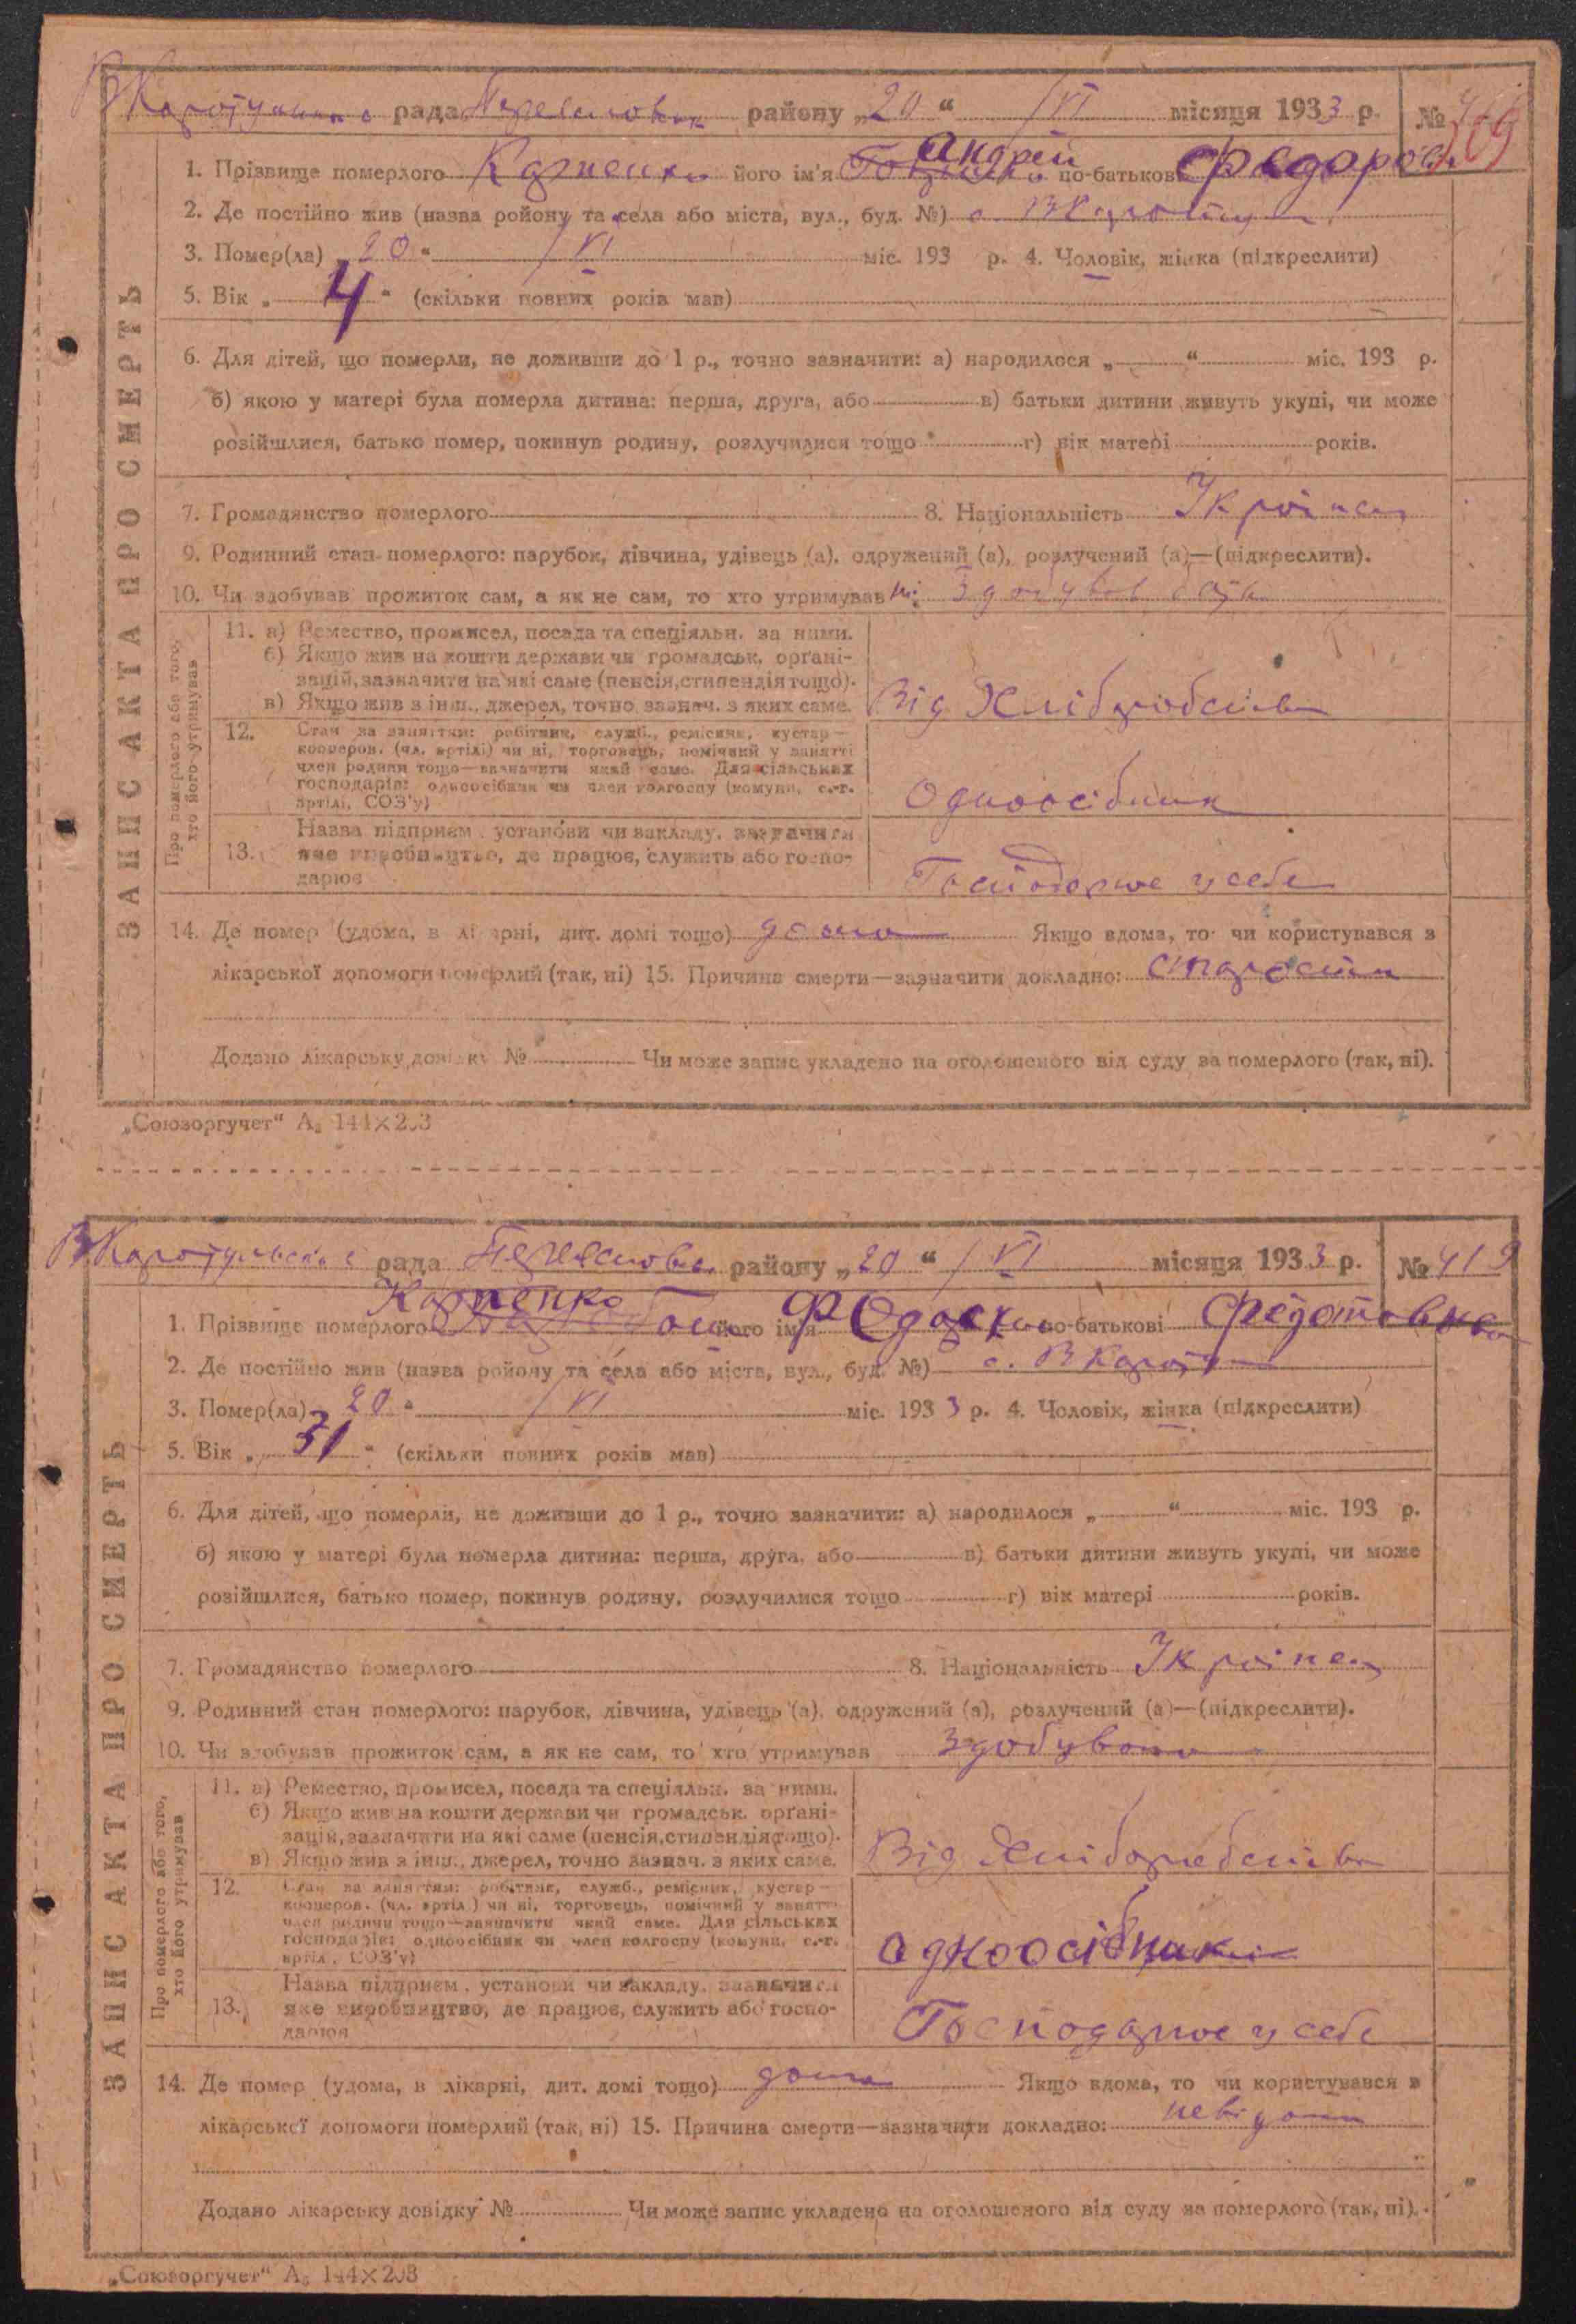 рада района „20 “ VI місяця 1933 р. №
1. Прізвище померлого його ім'я Андрей по-батькові Федоров.
2. Де постійно жив (назва району та села або міста, вул., буд. №) с.
3. Помер(ла) „ 20 “ VI міс. 193 р. 4. Чоловік, жінка (підкреслити)
5. Вік „ 4 “ (скільки повних років мав)
6. Для дітей, що померли, не доживши до 1 р., точно зазначити: а) народилося „ “ міс. 193 р.
б) якою у матері була померла дитина: перша, друга, або в) батьки дитини живуть укупі, чи може
розійшлися, батько помер, покинув родину, розлучилися тощо г) вік матері років.
7. Громадянство померлого 8. Національність Українец
9. Родинний стан померлого: парубок, дівчина, удівець (а), одружений (а), розлучений (а)—(підкреслити).
10. Чи здобував прожиток сам, а як не сам, то хто утримував
ЗАПИС АКТА ПРО СМЕРТЬ
Про померлого або того,
хто його утримував
11. а) Ремество, промисел, посада та спеціяльн. за ними.
б) Якщо жив на кошти держави чи громадськ. органі-
зацій, зазначити на які саме (пенсія, стипендія тощо).
в) Якщо жив з інш. джерел, точно зазнач. з яких саме. Від Хліборобства
12. Стан за заняттям: робітник, служб., ремісник, кустар—
кооперов. (чл. артілі) чи ні, торговець, помічний у занятті
член родини тощо—зазначити який саме. Для сільських
господарів: одноосібник чи член колгоспу (комуни, с.-г.
артілі, СОЗ'у) Одноосібник
13. Назва підприєм. установи чи закладу, зазначити
яке виробництво, де працює, служить або госпо-
дарює Господарює у себе
14. Де помер (удома, в лікарні, дит. домі тощо) дома Якщо вдома, то чи користувався з
лікарської допомоги померлий (так, ні) 15. Причина смерти—зазначити докладно: старости
Додано лікарську довідку № Чи може запис укладено на оголошеного від суду за померлого (так, ні).
„Союзоргучет“
рада района „20 “ VI місяця 1933 р. № 419
1. Прізвище померлого Карпенко його ім'я по-батькові Федотовна
2. Де постійно жив (назва району та села або міста, вул., буд. №) с.
3. Помер(ла) „ 20 “ VI міс. 1933 р. 4. Чоловік, жінка (підкреслити)
5. Вік „ 31 “ (скільки повних років мав)
6. Для дітей, що померли, не доживши до 1 р., точно зазначити: а) народилося „ “ міс. 193 р.
б) якою у матері була померла дитина: перша, друга, або в) батьки дитини живуть укупі, чи може
розійшлися, батько помер, покинув родину, розлучилися тощо г) вік матері років.
7. Громадянство померлого 8. Національність Українец
9. Родинний стан померлого: парубок, дівчина, удівець (а), одружений (а), розлучений (а)—(підкреслити).
10. Чи здобував прожиток сам, а як не сам, то хто утримував
ЗАПИС АКТА ПРО СМЕРТЬ
Про померлого або того,
хто його утримував
11. а) Ремество, промисел, посада та спеціяльн. за ними.
б) Якщо жив на кошти держави чи громадськ. органі-
зацій, зазначити на які саме (пенсія, стипендія тощо).
в) Якщо жив з інш. джерел, точно зазнач. з яких саме. Від
12. Стан за заняттям: робітник, служб., ремісник, кустар—
кооперов. (чл. артілі) чи ні, торговець, помічний у занятті
член родини тощо—зазначити який саме. Для сільських
господарів: одноосібник чи член колгоспу (комуни, с.-г.
артілі, СОЗ'у) одноосібник
13. Назва підприєм. установи чи закладу, зазначити
яке виробництво, де працює, служить або госпо-
дарює Господарює у себе
14. Де помер (удома, в лікарні, дит. домі тощо) дома Якщо вдома, то чи користувався з
лікарської допомоги померлий (так, ні) 15. Причина смерти—зазначити докладно: невідомо
Додано лікарську довідку № Чи може запис укладено на оголошеного від суду за померлого (так, ні).
„Союзоргучет“